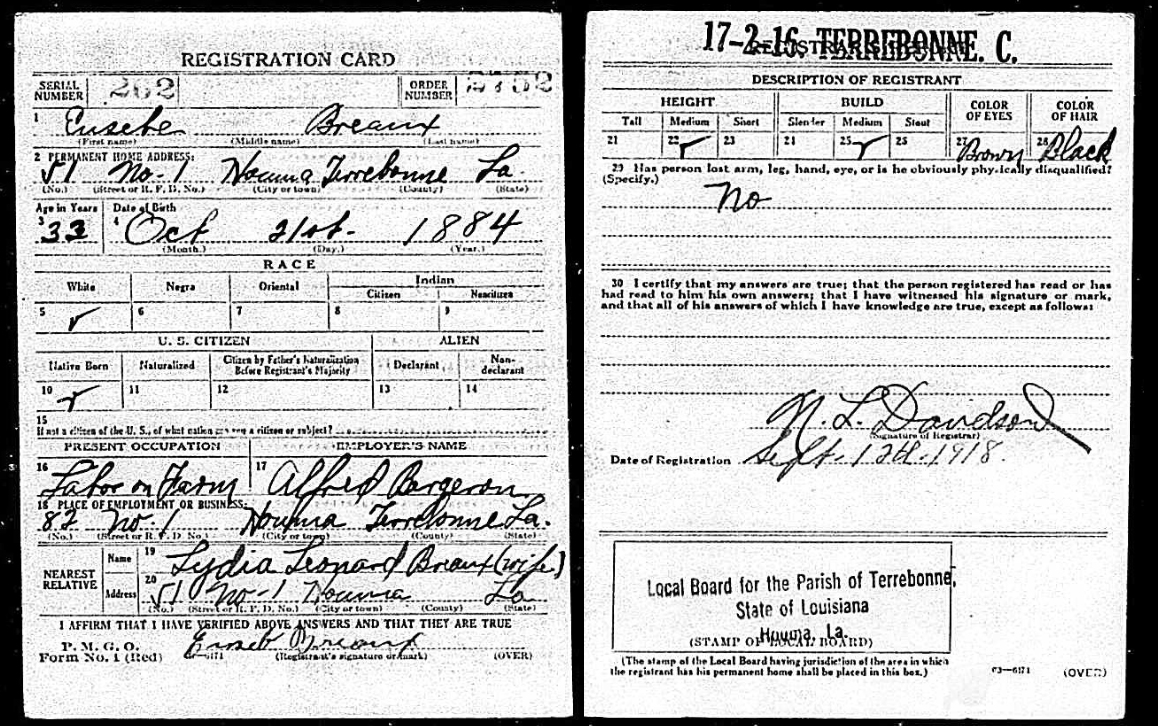 REGISTRATION CARD
SERIAL NUMBER 262 ORDER NUMBER
1 Eusebe Breaux
(First name) (Middle name) (Last name)
2 PERMANENT HOME ADDRESS:
No-1 Houma Terrebonne La
(No.) (Street or R. F. D. No.) (City or town) (County) (State)
Age in Years Date of Birth
3 33 4 Oct 21st- 1884
(Month.) (Day.) (Year.)
RACE
White Negro Oriental Indian
Citizen Noncitizen
5 ✓ 6 7 8 9
U. S. CITIZEN ALIEN
Native Born Naturalized Citizen by Father's Naturalization Before Registrant's Majority Declarant Non-declarant
10 ✓ 11 12 13 14
15
If not a citizen of the U. S., of what nation are you a citizen or subject?
PRESENT OCCUPATION EMPLOYER'S NAME
16 Labor on Farm 17 Alfred Bergeron
18 PLACE OF EMPLOYMENT OR BUSINESS:
82 No-1 Houma Terrebonne La.
(No.) (Street or R. F. D. No.) (City or town) (County) (State)
NEAREST RELATIVE Name 19 Lydia Leonard Breaux (wife)
Address 20 No-1 Houma La
(No.) (Street or R. F. D. No.) (City or town) (County) (State)
I AFFIRM THAT I HAVE VERIFIED ABOVE ANSWERS AND THAT THEY ARE TRUE
P. M. G. O.
Form No. 1 (Red) Euseb Breaux
(Registrant's signature or mark) (OVER)
17-2-16. TERREBONNE. C.
REGISTRAR'S REPORT
DESCRIPTION OF REGISTRANT
HEIGHT BUILD COLOR OF EYES COLOR OF HAIR
Tall Medium Short Slender Medium Stout
21 22 ✓ 23 24 25 ✓ 26 27 Brown 28 Black
29 Has person lost arm, leg, hand, eye, or is he obviously physically disqualified?
(Specify.)
No
30 I certify that my answers are true; that the person registered has read or has
had read to him his own answers; that I have witnessed his signature or mark,
and that all of his answers of which I have knowledge are true, except as follows:
N. L. Davidson
(Signature of Registrar)
Date of Registration Sept. 12th. 1918.
Local Board for the Parish of Terrebonne,
State of Louisiana
Houma, La.
(STAMP OF LOCAL BOARD)
(The stamp of the Local Board having jurisdiction of the area in which
the registrant has his permanent home shall be placed in this box.)
03—6171 (OVER)